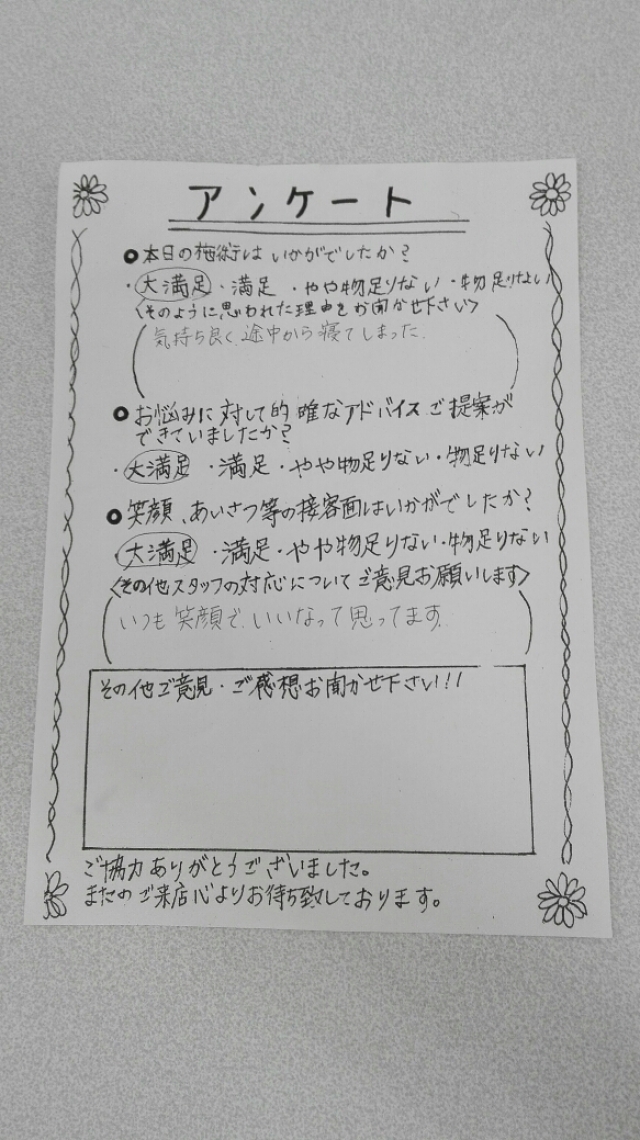 アンケート
本日の施術はいかがでしたか?
・大満足・満足・やや物足りない・物足りない
〈そのように思われた理由をお聞かせ下さい〉
気持ち良く、途中から寝てしまった。
お悩みに対して的確なアドバイスご提案が
できていましたか?
・大満足・満足・やや物足りない・物足りない
笑顔、あいさつ等の接客面はいかがでしたか?
・大満足・満足・やや物足りない・物足りない
〈その他スタッフの対応についてご意見お願いします〉
いつも笑顔で、いいなって思ってます。
その他ご意見・ご感想お聞かせ下さい!!!
ご協力ありがとうございました。
またのご来店心よりお待ち致しております。